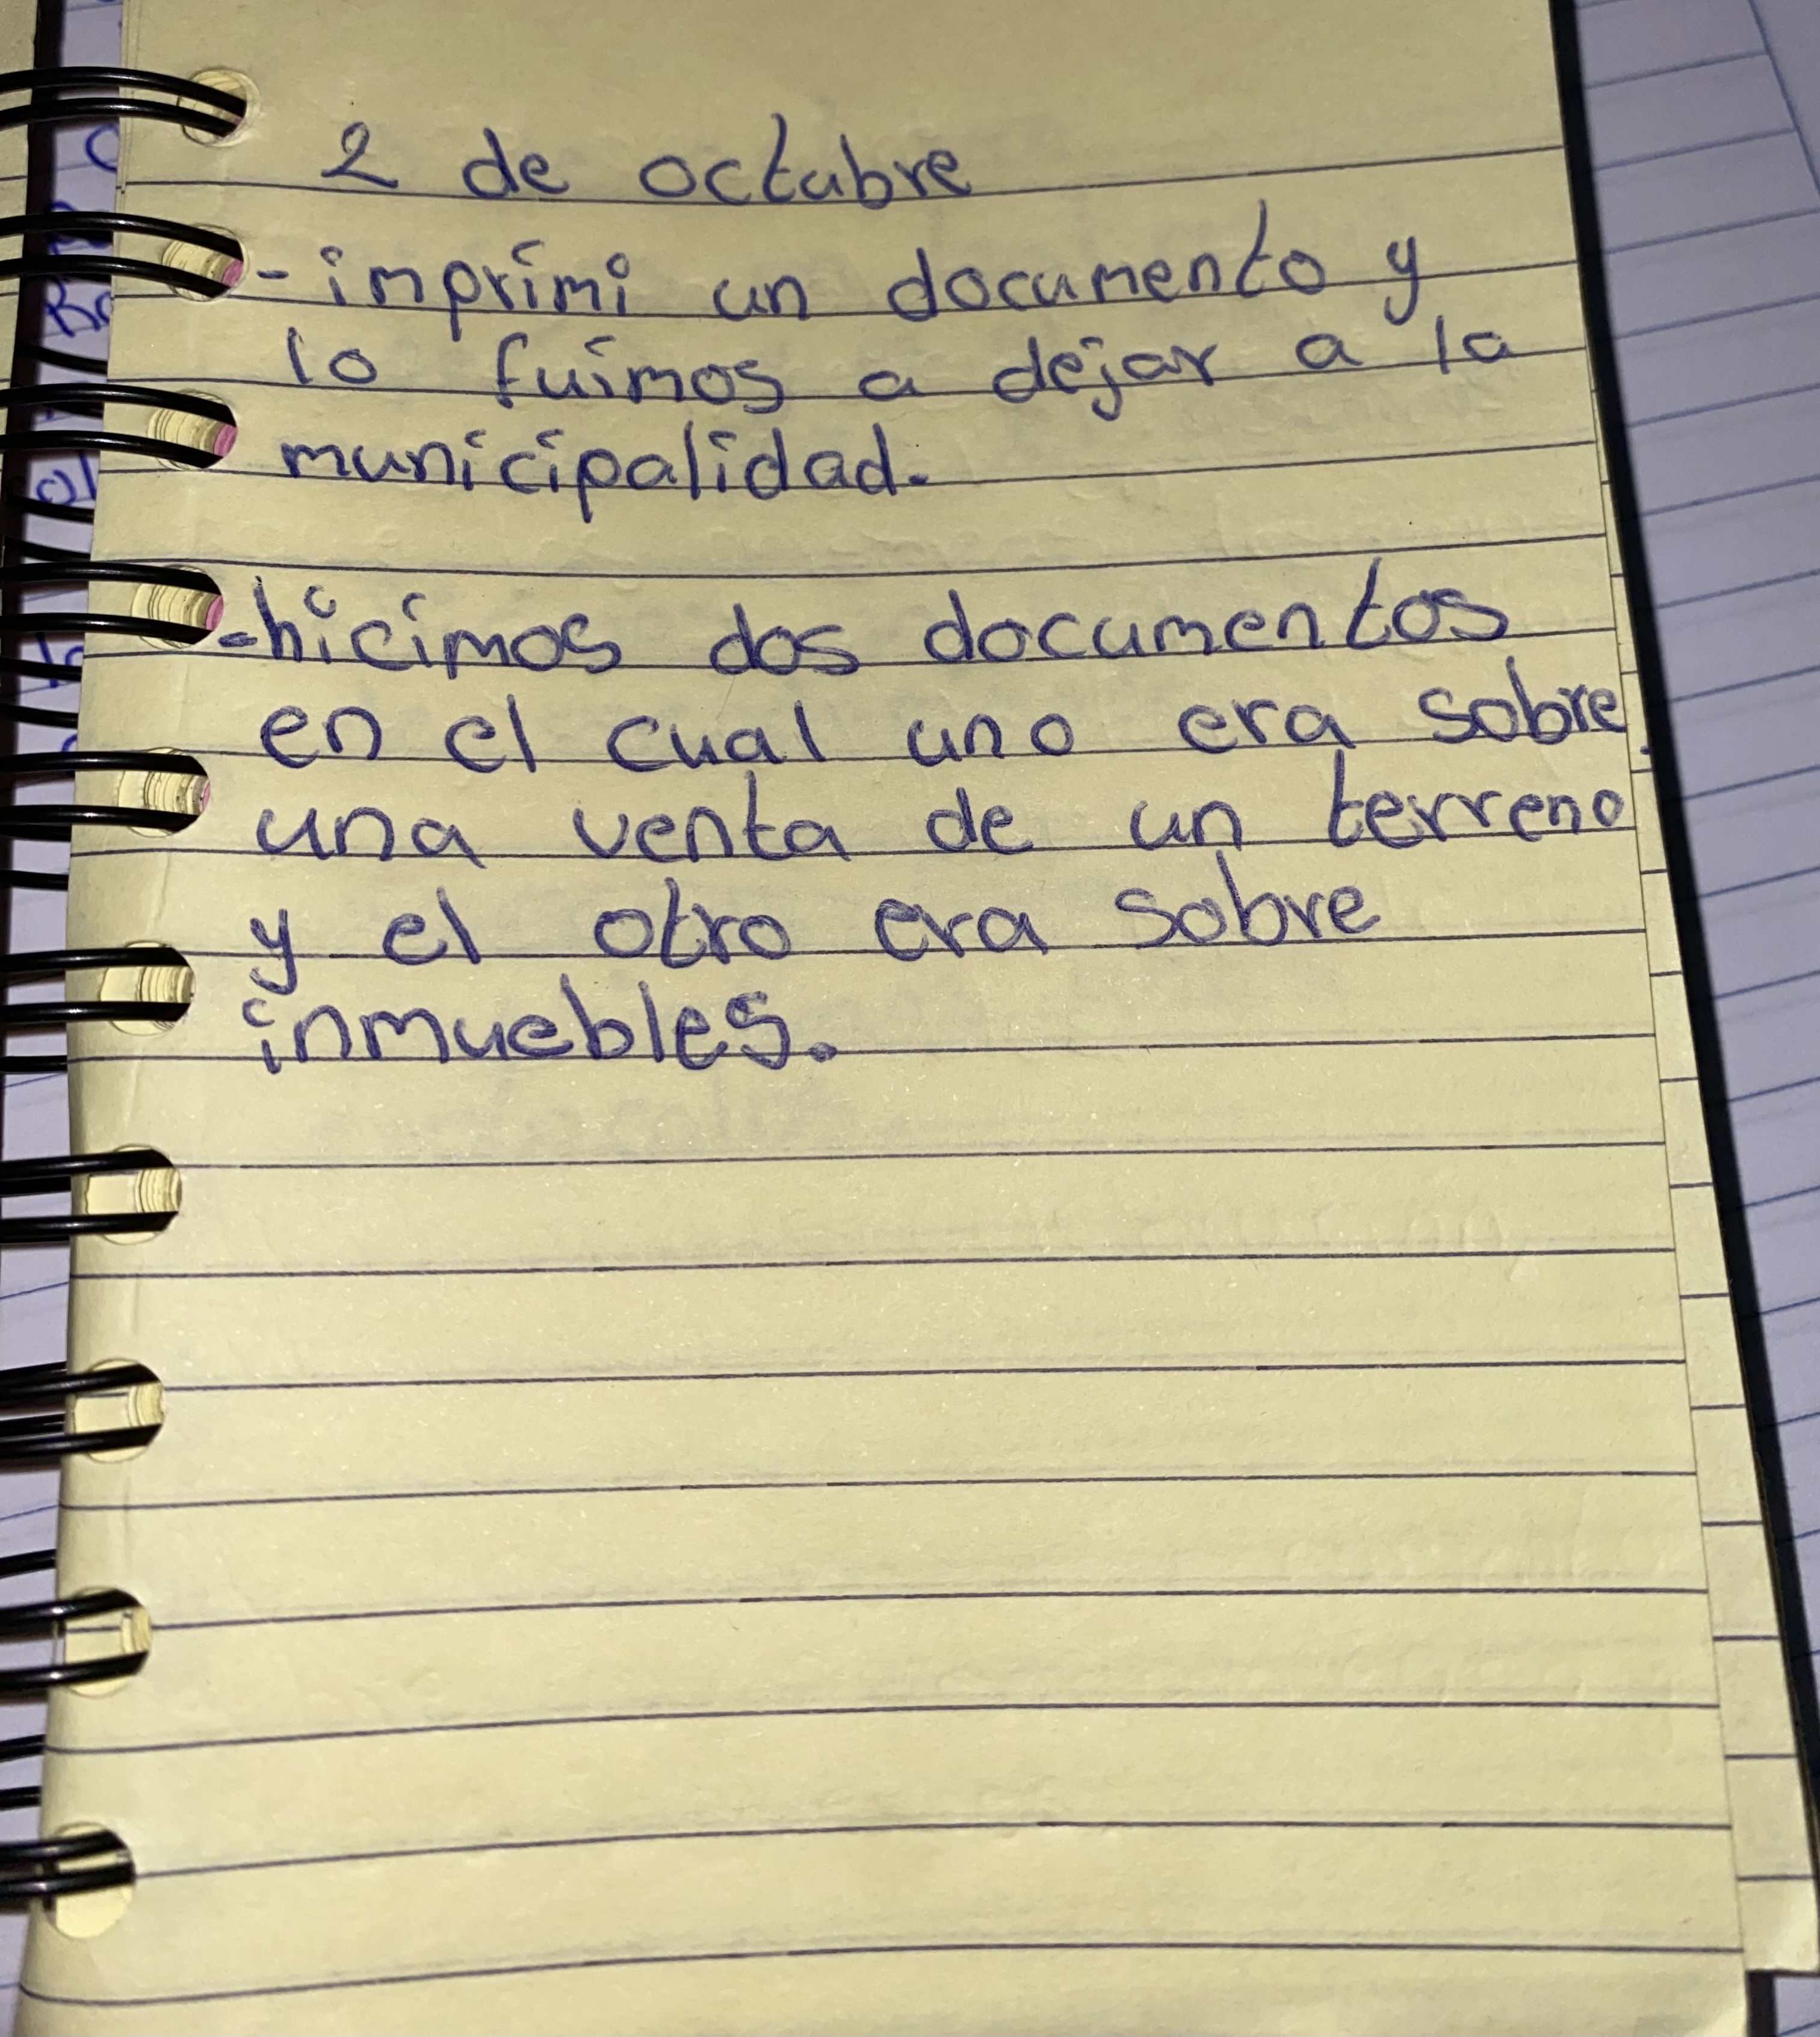 2 de octubre
-imprimi un documento y
lo fuimos a dejar a la
municipalidad.
-hicimos dos documentos
en el cual uno era sobre
una venta de un terreno
y el otro era sobre
inmuebles.